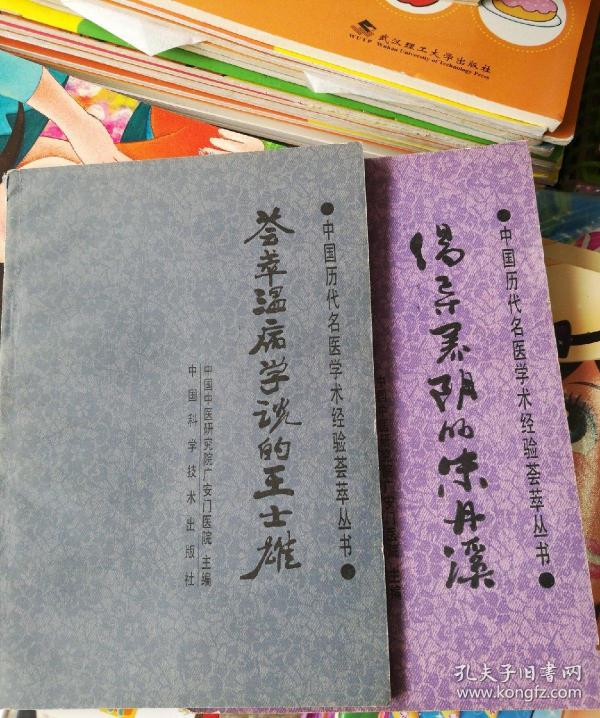 武汉理工大学出版社
WUTP Wuhan University of Technology Press
●中国历代名医学术经验荟萃丛书●
荟萃温病学说的王士雄
中国中医研究院广安门医院 主编
中国科学技术出版社
●中国历代名医学术经验荟萃丛书●
倡导养阴的朱丹溪
中国中医研究院广安门医院 主编
孔夫子旧书网
www.kongfz.com